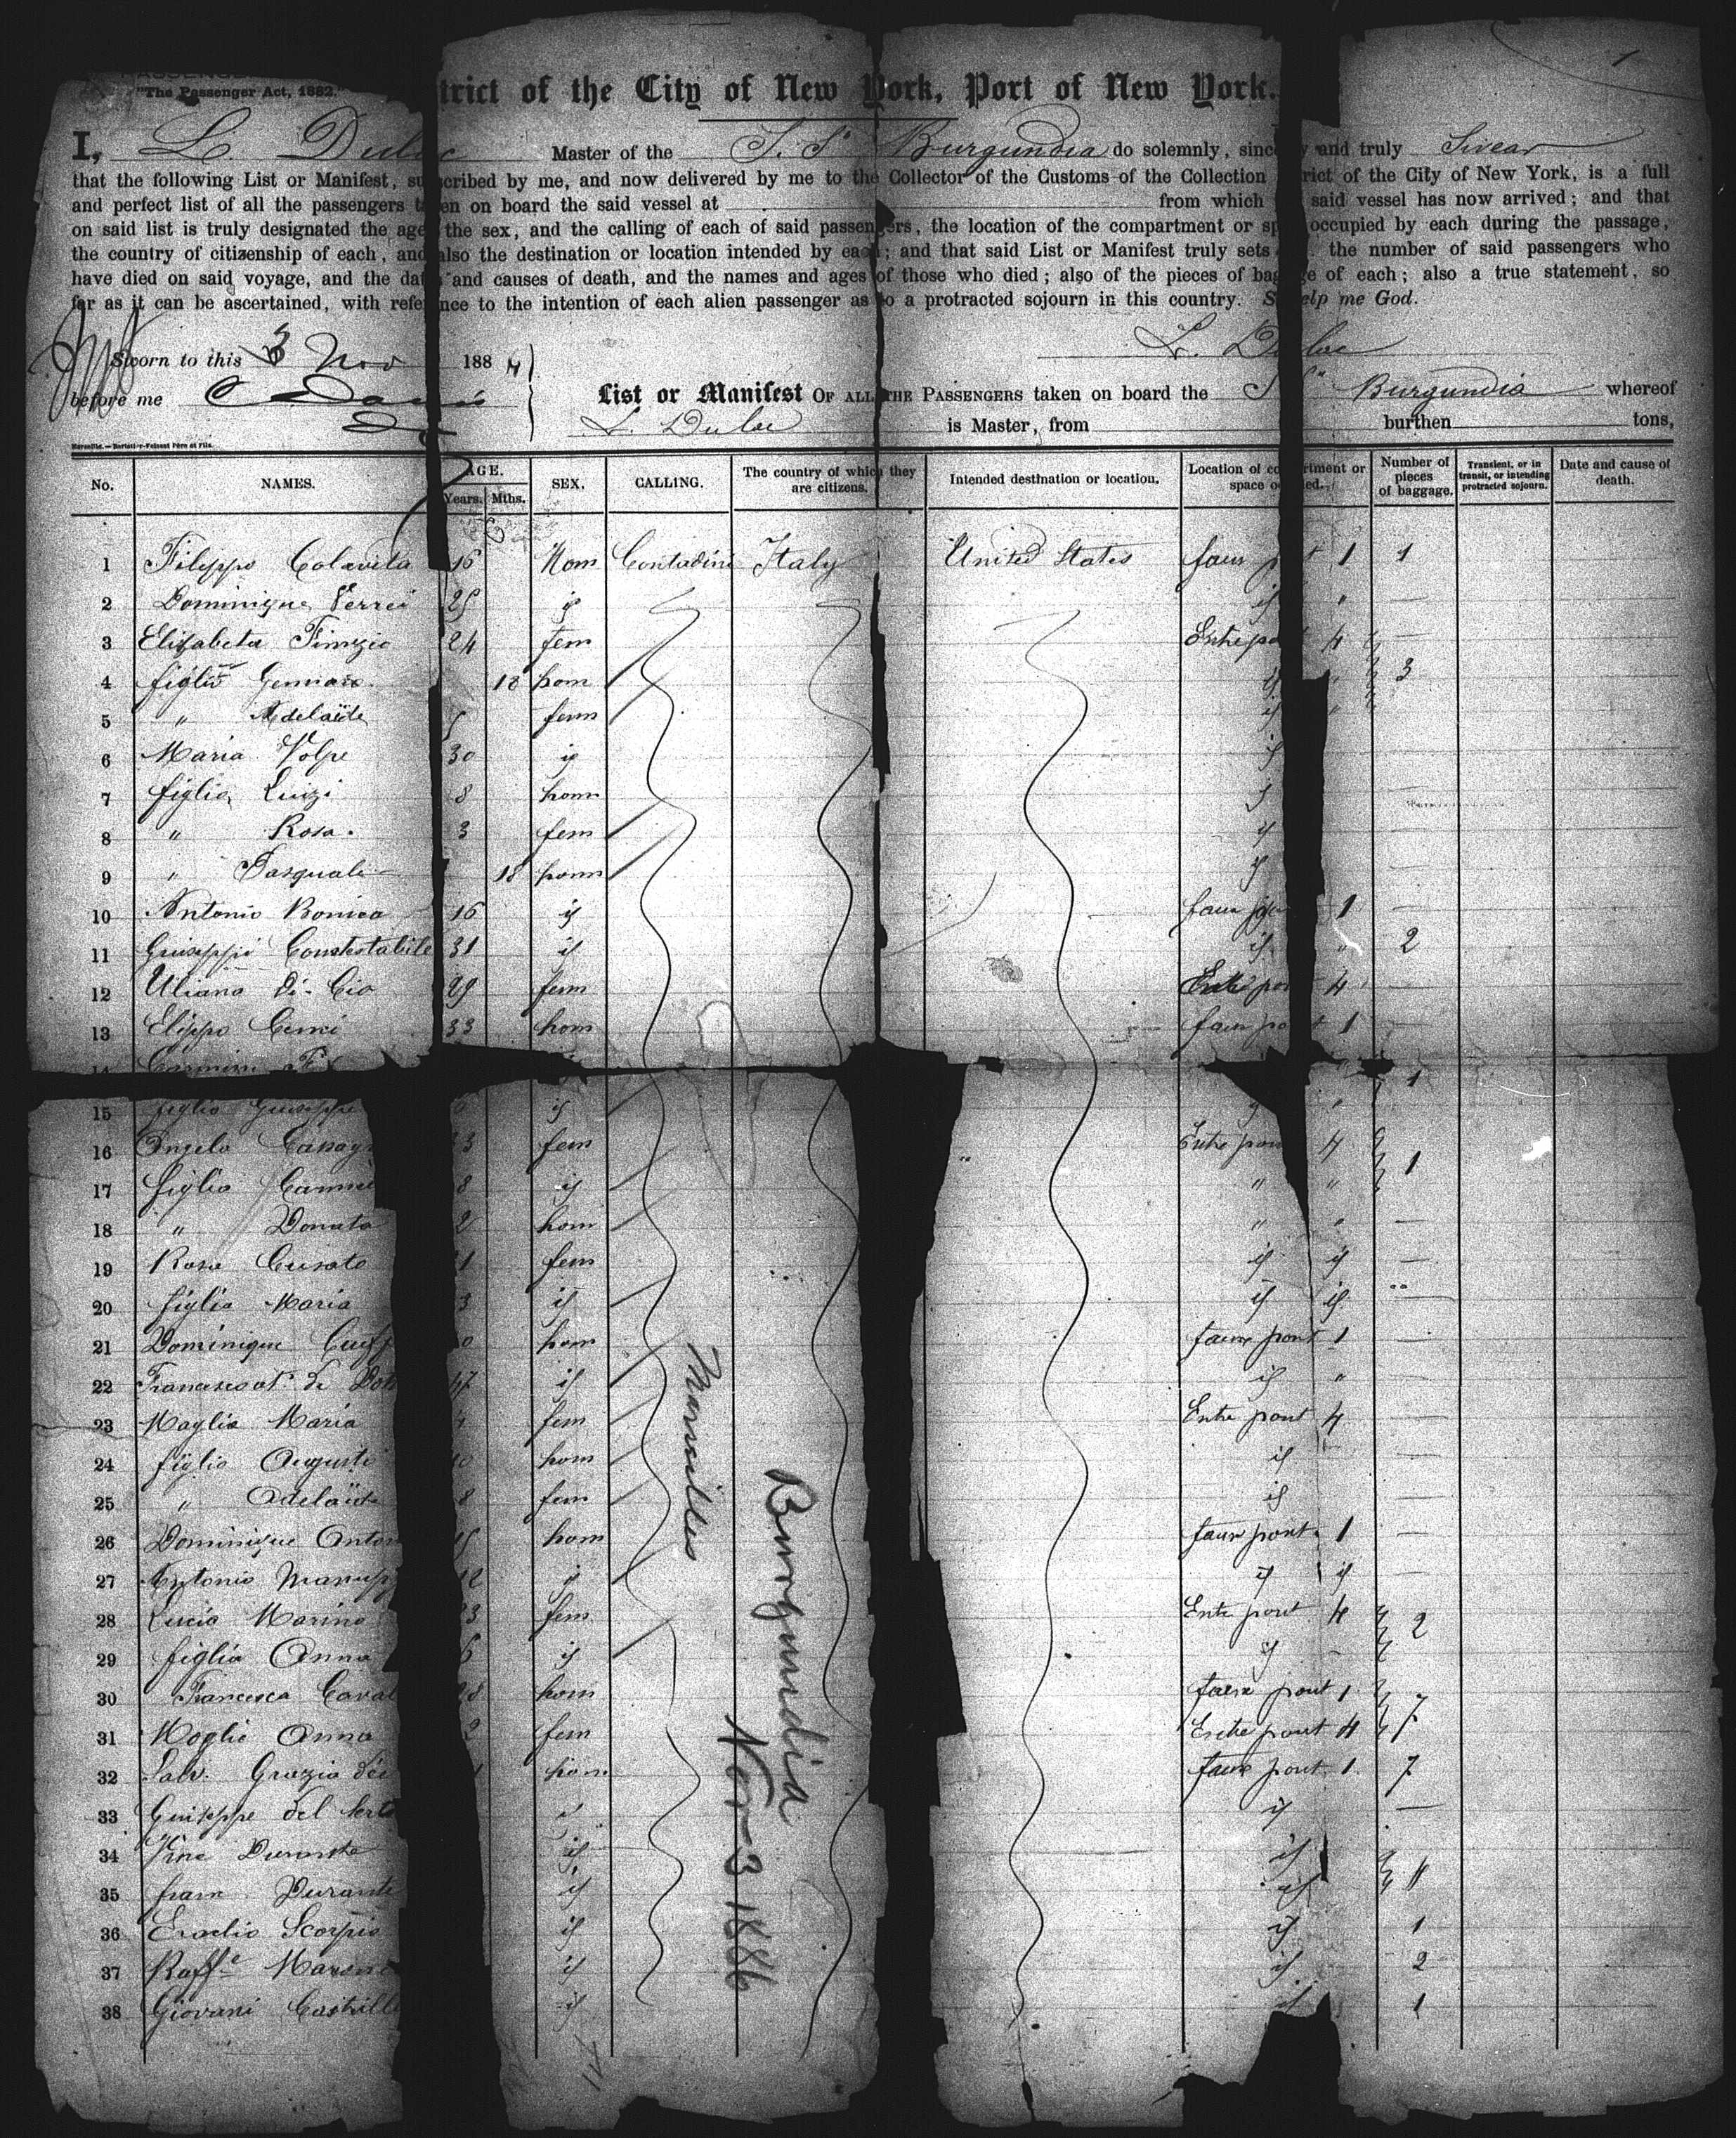 "The Passenger Act, 1882."
trict of the City of New York, Port of New York.
1
I, L. Duluc Master of the S. S. Burgundia do solemnly, since y and truly Swear
that the following List or Manifest, su scribed by me, and now delivered by me to the Collector of the Customs of the Collection rict of the City of New York, is a full
and perfect list of all the passengers t en on board the said vessel at from which said vessel has now arrived; and that
on said list is truly designated the age the sex, and the calling of each of said passengers, the location of the compartment or sp occupied by each during the passage,
the country of citizenship of each, and also the destination or location intended by each; and that said List or Manifest truly sets the number of said passengers who
have died on said voyage, and the dat s and causes of death, and the names and ages of those who died; also of the pieces of bag ge of each; also a true statement, so
far as it can be ascertained, with refe nce to the intention of each alien passenger as to a protracted sojourn in this country. S elp me God.
L. Duluc
Sworn to this 3 Nov 188
before me
List or Manifest OF ALL THE PASSENGERS taken on board the S S Burgundia whereof
L. Duluc is Master, from burthen tons,
No. NAMES. AGE. SEX. CALLING. The country of which they are citizens. Intended destination or location. Location of co rtment or space o ied. Number of pieces of baggage. Transient, or in transit, or intending protracted sojourn. Date and cause of death.
Years. Mths.
1 Filippo Colavita 16 Hom Contadini Italy United States faux p t 1 1
2 Dominique Verrei 25 id id "
3 Elisabeta Finizio 24 fem Entrepo t 4 —
4 figlio Gennaro 18 hom id " 3
5 " Adelaïde 5 fem id "
6 Maria Volpe 30 id id —
7 figlio Luizi 8 hom id —
8 " Rosa. 3 fem id —
9 " Pasquali 18 hom id —
10 Antonio Bonica 16 id faux po 1 —
11 Guiseppi Constestabile 31 id id " 2
12 Uliana Di-Cio 29 fem Entrepon 4 —
13 Elippo Cenci 33 hom faux po t 1 —
14 Carmini 1
15 figlio Guiseppe 6 id id "
16 Angelo Canog 33 fem Entre pon 4
17 figlio Carmi 8 id " " 1
18 " Donato 2 hom " " —
19 Rosa Cusato 1 fem id id —
20 figlio Maria 3 id id id "
21 Dominique Cuff 0 hom faux pont 1 —
22 Francesco de Don 47 id id " —
23 Maglia Maria 4 fem Entre pont 4 —
24 figlio Augusti 10 hom id —
25 " Adelaïde 8 fem id —
26 Dominique Anton 15 hom faux pont 1 —
27 Antonio Manupp 12 id id id —
28 Lucia Marino 23 fem Entre pont 4 2
29 figlia Anna 6 id id
30 Francesca Caval 28 hom faux pont 1
31 Moglie Anna 2 fem Entre pont 4 7
32 Salv. Grazio dei hom faux pont 1 7
33 Guiseppe del Serto id —
34 Durante id id
35 fram Durante id id
36 Eraclio Scorpio id id 1
37 Raff Marsni id id 2
38 Giovani Castrillo id id 1
Marseilles
Burgundia
Nov-3 1886